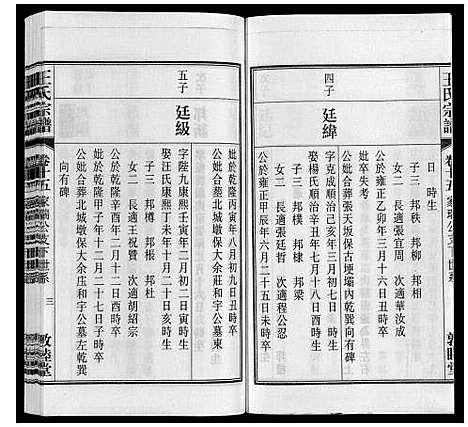 王氏宗譜
卷十五
日 時生
子三 邦秩 邦柳 邦相
女二 長適張宜周 次適華汝成
公於雍正乙卯年三月十六日卒
妣卒失考
公妣合葬張天坂保古埂壩內乾巽向有碑
四子 廷緯
字克成順治己亥年三月初三日 時生
娶楊氏順治辛丑年七月十八酉時生
子三 邦樸 邦棣 邦梁
女二 長適張廷哲 次適程公忍
公於雍正甲辰年六月二十五日未時卒
敦睦堂
妣於乾隆丙寅年八月初九日丑時卒
公妣合塟北城墩保大余莊和宇公墓東
五子 廷級
字陞九康熙壬寅年二月初二日寅時生
娶汪氏康熙丁未年十月二十日亥時生
子三 邦樽 邦楨 邦杜
女二 長適王祝贊 次適胡紹宗
公於乾隆辛酉年二月十二日 時卒
妣於乾隆甲子年十二月二十七日子時卒
公妣合塟北城墩保大余庄和宇公墓左乾巽
向有碑
王氏宗譜
卷十五
三
敦睦堂